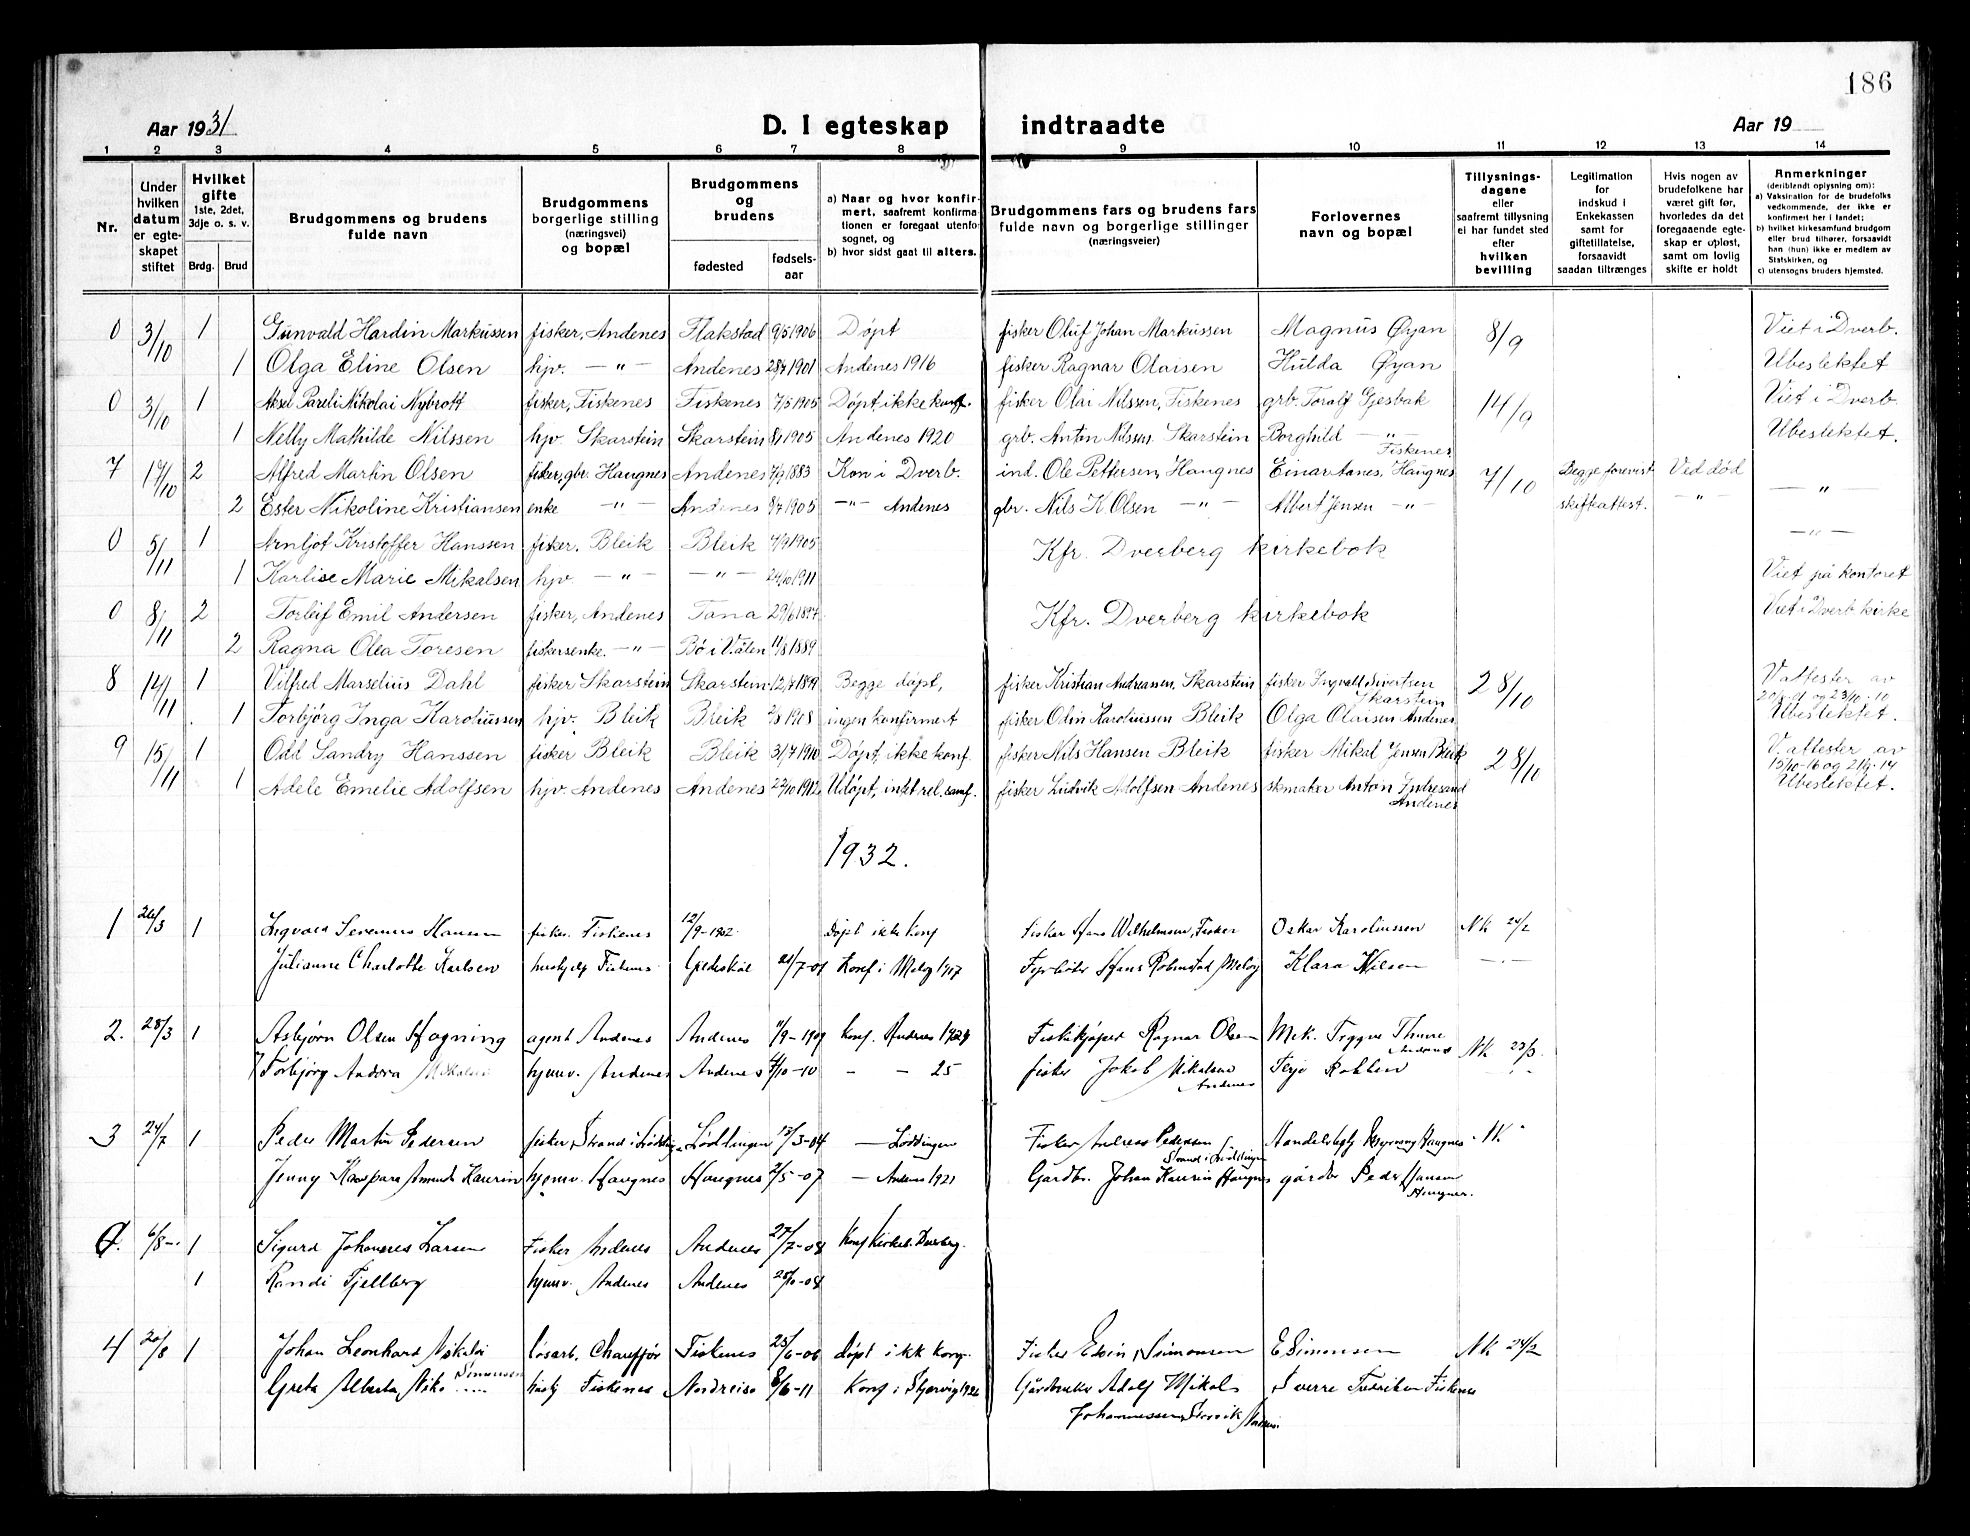 186
Aar 1931 D. I egteskap indtraadte Aar 19
1 2 3 4 5 6 7 8 9 10 11 12 13 14
Nr.
Under hvilken datum er egte-skapet stiftet
Hvilket gifte 1ste, 2det, 3dje o. s. v.
Brdg. Brud
Brudgommens og brudens fulde navn
Brudgommens borgerlige stilling (næringsvei) og bopæl
Brudgommens og brudens
fødested
fødsels-aar
a) Naar og hvor konfir-mert, saafremt konfirma-tionen er foregaat utenfo-sognet, og
b) hvor sidst gaat til alters.
Brudgommens fars og brudens fars fulde navn og borgerlige stillinger (næringsveier)
Forlovernes navn og bopæl
Tillysnings-dagene eller saafremt tillysning ei har fundet sted efter hvilken bevilling
Legitimation for indskud i Enkekassen samt for giftetillatelse, forsaavidt saadan tiltrænges
Hvis nogen av brudefolkene har været gift før, hvorledes da det foregaaende egte-skap er opløst, samt om lovlig skifte er holdt
Anmerkninger (deriblandt oplysning om):
a) Vaksination for de brudefolks vedkommende, der ikke er konfirmert her i landet;
b) hvilket kirkesamfund brudgom eller brud tilhører, forsaavidt han (hun) ikke er medlem av Statskirken, og
c) utensogns bruders hjemsted.
0 3/10 1 Gunvald Hardin Markussen fisker, Andenes Flakstad 9/5 1906 Døpt fisker Oluf Johan Markussen Magnus Øyan 8/9 Viet i Dverb.
1 Olga Eline Olsen hjv. — " — Andenes 1901 Andenes 1916 fisker Ragnar Olaisen Hulda Øyan Ubeslektet
0 3/10 1 Aksel Pareli Nikolai Nybrott fisker, Fiskenes Fiskenes 7/5 1905 Døpt, ikke konf. fisker Olai Nilssen, Fiskenes grb. Toralf Gjesbak 14/9 Viet i Dverb
1 Nelly Mathilde Nilssen hjv. Skarstein Skarstein 1905 Andenes 1920 grb. Anton Nilssen Skarstein Borghild — " — Fiskenes Ubeslektet.
7 17/10 2 Alfred Martin Olsen fisker, gbr. Haugnes Andenes 1883 Kon i Dverb. ind. Ole Pettersen, Haugnes Einar Aanes, Haugnes 7/10 Begge forevist Ved død
2 Ester Nikoline Kristiansen enke — " — Andenes 1905 — " — Andenes gbr. Nils K Olsen — " — Albert Jensen — " — skifteattest. — " — — " —
0 5/11 1 Arnljot Kristoffer Hanssen fisker. Bleik Bleik 4/9 1905 Kfr. Dverberg kirkebok — " —
1 Karlise Marie Mikalsen hjv. — " — — " — 24/10 1911 Viet på kontoret
0 8/11 2 Torleif Emil Andersen fisker, Andenes Tana 29/6 1897 Kfr. Dverberg kirkebok Viet i Dverb kirke
2 Ragna Olea Toresen fiskersenke. — " — Bø i V.ålen 11/8 1889
8 14/11 1 Vilfred Marselius Dahl fisker Skarstein Skarstein 12/7 1899 Begge døpt, fisker Kristian Andreassen, Skarstein fisker Ingvald Sivertsen Skarstein 28/10 V.attester av
1 Torbjørg Inga Karoliussen hjv. Bleik Bleik 1908 ingen konfirmert fisker Olin Karoliussen Bleik Olga Olaisen Andenes Ubeslektet.
9 15/11 1 Odd Sandry Hanssen fisker Bleik Bleik 31/7 1910 Døpt, ikke konf. fisker Nils Hansen Bleik fisker Mikal Jensen Bleik 28/10 V.attester av
15/10-16 og 21/9-14
1 Adele Emelie Adolfsen hjv. Andenes Andenes 22/10 1912 Udøpt, intet rel. samf. fisker Ludvik Adolfsen Andenes skmaker Anton Indresand Andenes Ubeslektet.
1932.
1 26/3 1 Ingvald Severinus Hansen fisker. Fiskenes 12/9-1902 Døpt ikke konf Fisker Hans Wilhelmsen, Fisker Oskar Karoliussen Nk 24/2
Julianne Charlotte Karlsen Fiskenes Gildeskål 21/7-01 Konf i Meløy 1917 Fyrbøter Hans Meløy Klara Nilsen — " —
2. 28/3 1 Asbjørn Olsen Hagning agent Andenes Andenes 11/9-1909 Konf. Andenes 1924 Fiskekjøper Ragnar Olsen Mek. Trygve Thuve Andenes Nk 23/3.
1 Torbjørg Andora Mikalsen hjemv. Andenes Andenes 4/10-10 — — 25 fisker Jakob Mikalsen Andenes Terje Rokken
3 24/7 1 Peder Martin Pedersen fisker, Strand i Lødding. Lødingen 13/3-04 — Lødingen Fisker Andreas Pedersen Strand i Lødingen Handelsbetj. Haugnes N.
Jenny Kaspara Amanda Kaurin hjemv. Haugnes Haugnes 2/5-07 — Andenes 1921 Gårdbr. Johan Kaurin Haugnes gårdbr Peder Hansen Haugnes.
0. 6/8 1 Sigurd Johannes Larsen Fisker Andenes Andenes 27/7-08 Konf Kirkeb. Dverberg.
1 Randi Fjellberg hjemv. Andenes Andenes 08
4 20/8 1 Johan Leonhard Nikolai Simonsen løsarb. Chauffør Fiskenes 25/6-06 døpt ikk konf. Fisker Edvin Simonsen E Simonsen Nk 24/2
Greta Alberta Fiskenes Nordreisa 8/6-11 Konf i Skjervøy Gårdbruker Adolf Mikal Johannessen Sverre Fredriksen Fiskenes